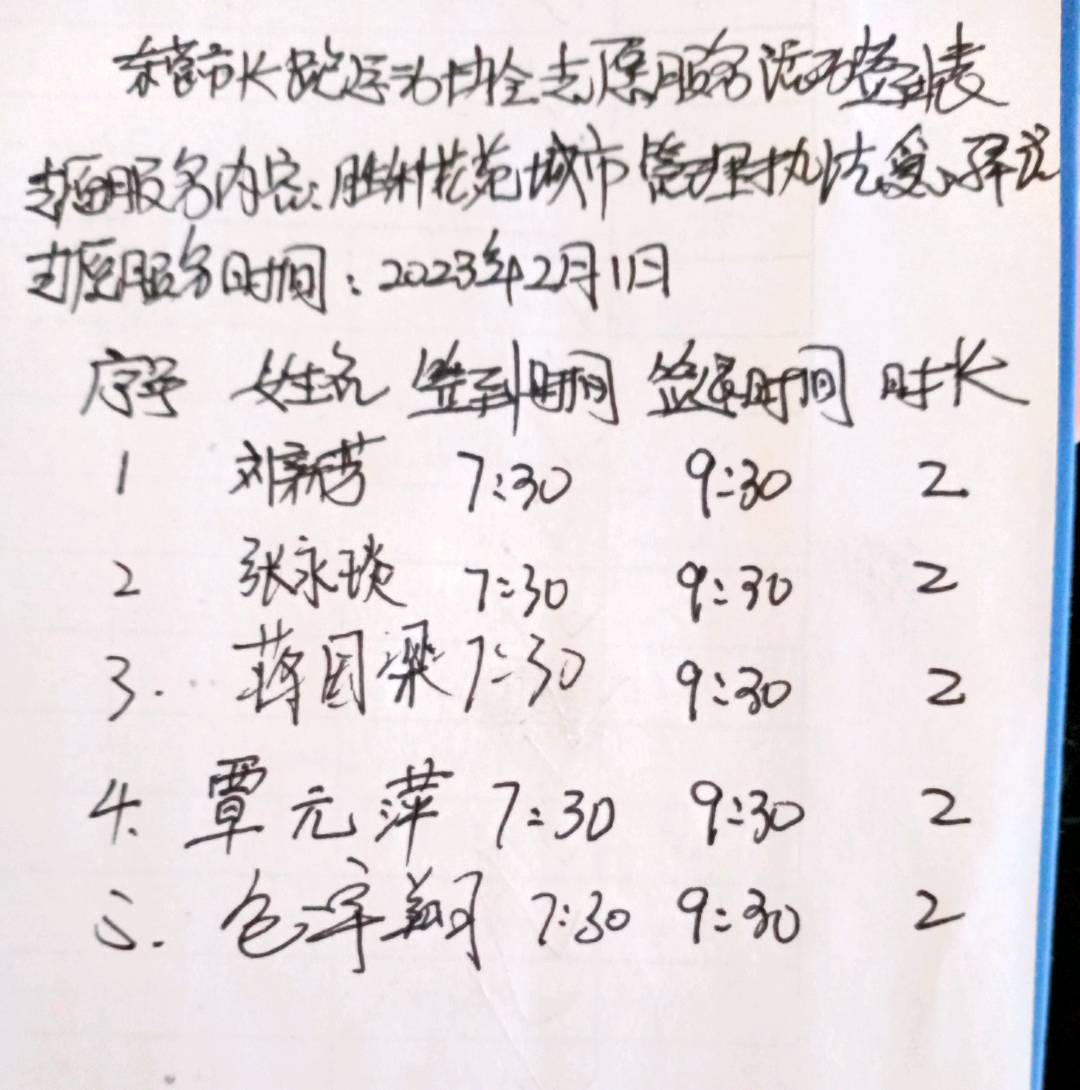 东营市长跑运动协会志愿服务活动签到表
志愿服务内容:胜利花苑城市管理执法
志愿服务时间:2023年2月1日
序号 姓名 签到时间 签退时间 时长
1 刘新芳 7:30 9:30 2
2 张永琰 7:30 9:30 2
3. 蒋国梁 7:30 9:30 2
4. 覃元萍 7:30 9:30 2
5. 包宇翔 7:30 9:30 2